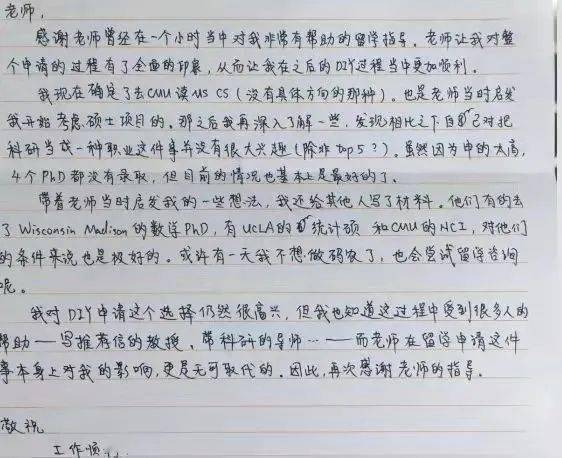 老师，
感谢老师曾经在一个小时当中对我非常有帮助的留学指导。老师让我对整
个申请的过程有了全面的印象，从而让我在之后的DIY过程当中更加顺利。
我现在确定了去CMU读MS CS（没有具体方向的那种）。也是老师当时启发
我开始考虑硕士项目的。那之后我再深入了解一些，发现相比之下自己对把
科研当成一种职业这件事并没有很大兴趣（除非top5？）。虽然因为申的太高，
4个PhD都没有录取，但目前的情况也基本上是最好的了。
带着老师当时启发我的一些想法，我还给其他人写了材料。他们有的去
了Wisconsin Madison的数学PhD，有UCLA的统计硕和CMU的HCI，对他们
的条件来说也是极好的。或许有一天我不想做码农了，也会尝试留学咨询
呢。
我对DIY申请这个选择仍然很高兴，但我也知道这过程中受到很多人的
帮助——写推荐信的教授、带科研的导师…——而老师在留学申请这件
事本身上对我的影响，更是无可取代的。因此，再次感谢老师的指导。
敬祝
工作顺